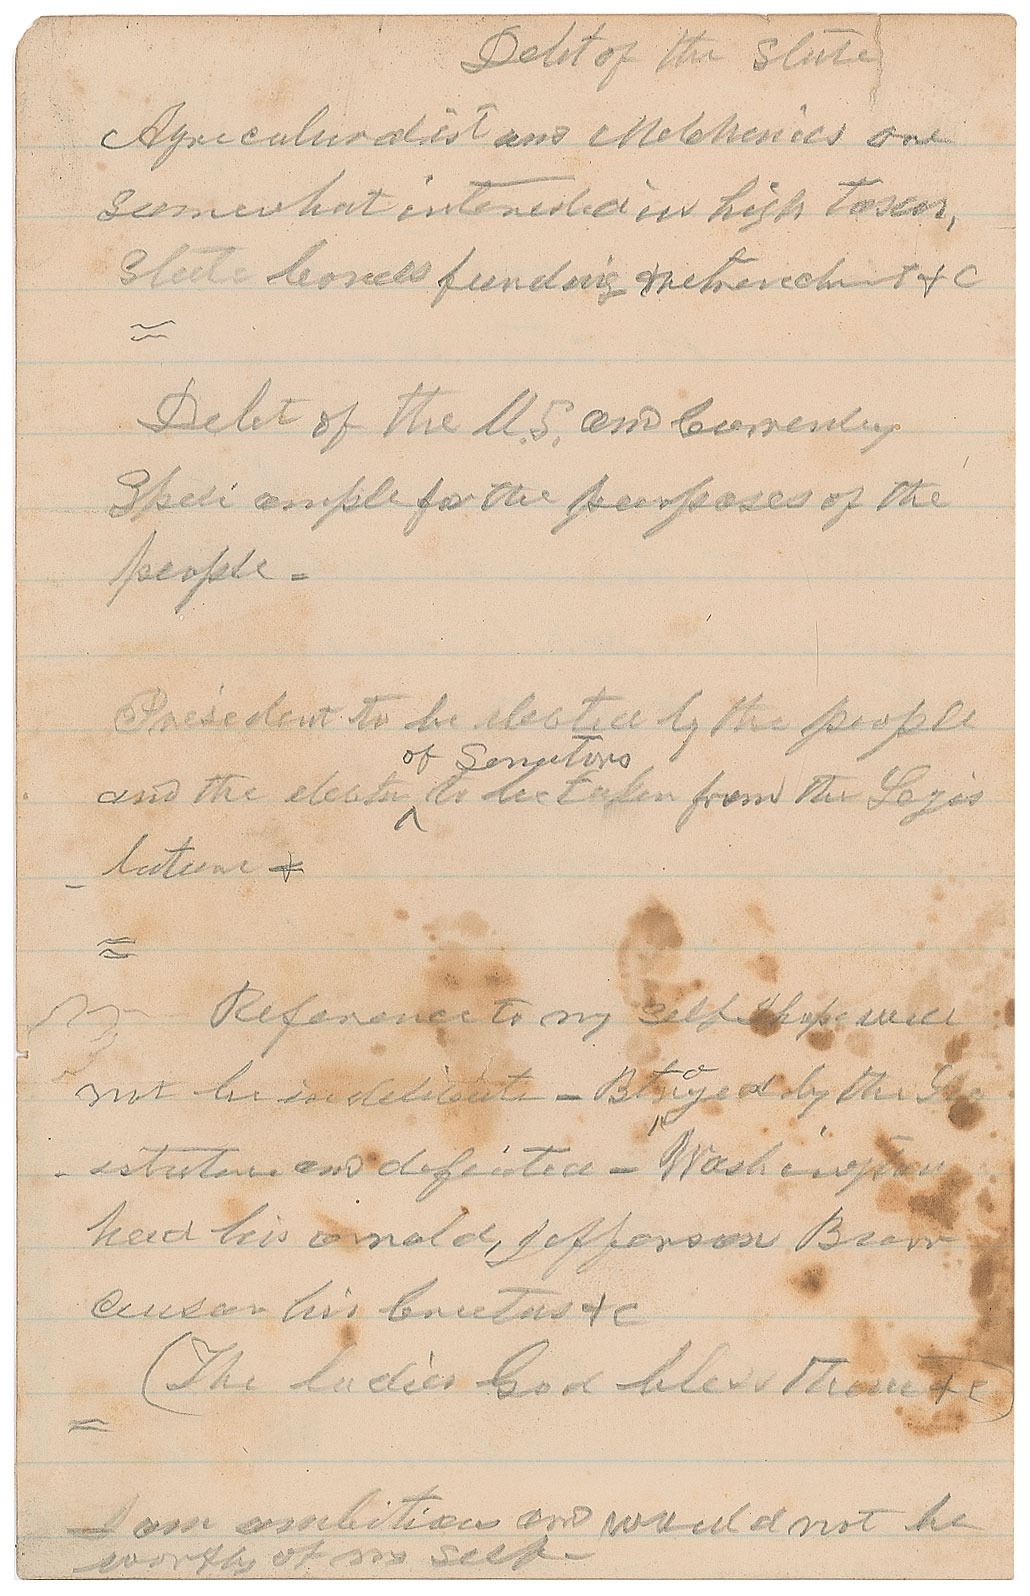 Debt of the State
Agriculturalist and Mechanics are
Somewhat interested in high taxes,
State bonds funding retrenchmt &C
Debt of the U.S. and Currency
ample for the purposes of the
people -
President to be elected by the people
of Senators
and the electn to be taken from the Legis
lature &
Reference to my Self I hope will
not be indelicate - Betrayed by the
and defeated - Washington
had his arnold, Jefferson Burr
Ceusar his brutus &C
(The ladies God bless them &C)
I am ambitious and would not be
worthy of my Self -